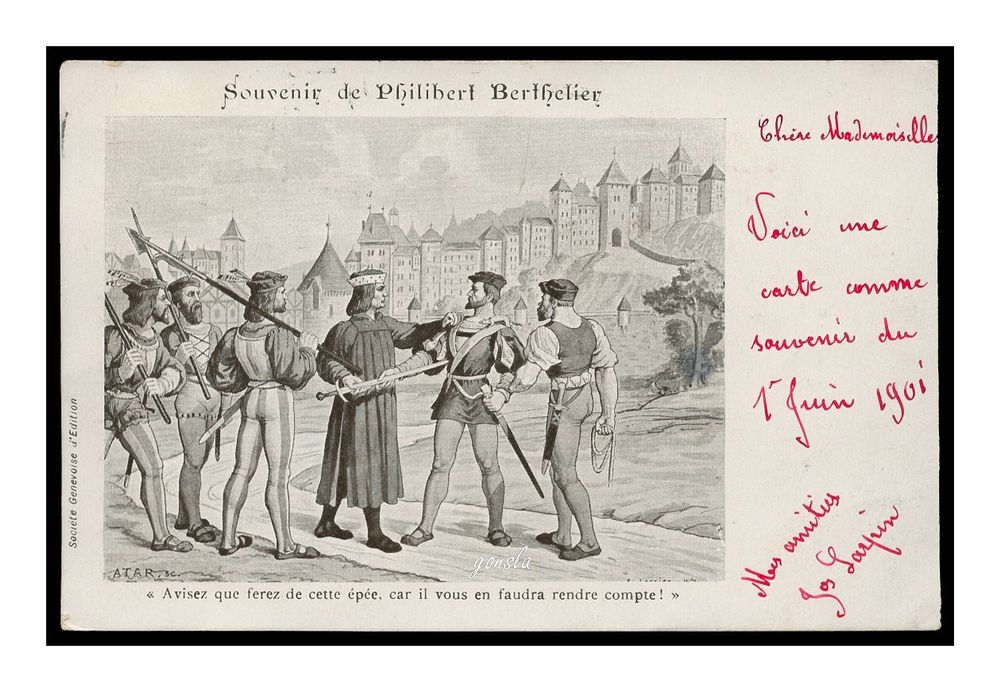 Souvenir de Philibert Berthelier
Chère Mademoiselle
Voici une
carte comme
souvenir du
1r Juin 1901
Mes amitiés
Société Genevoise d'Edition
ATAR, sc.
gonsla
« Avisez que ferez de cette épée, car il vous en faudra rendre compte ! »